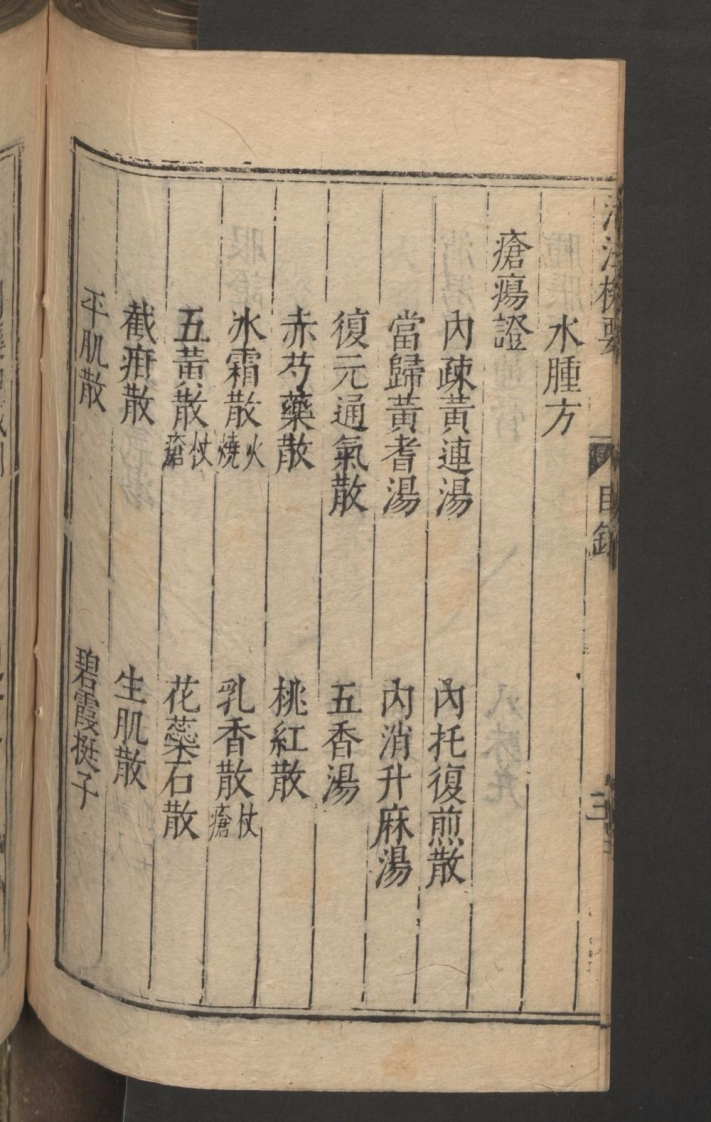 水腫方
瘡瘍證
內疎黃連湯 內托復煎散
當歸黃耆湯 內消升麻湯
復元通氣散 五香湯
赤芍藥散 桃紅散
氷霜散火燒 乳香散杖瘡
五黃散杖瘡 花蘂石散
截疳散 生肌散
平肌散 碧霞挺子
目錄
三